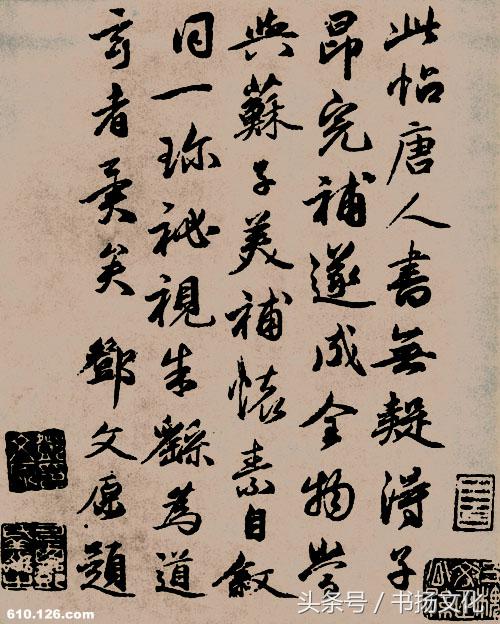 此帖唐人書無疑得子
昂完補遂成全物當
與蘇子美補懷素自敘
同一珎祕視朱繇為道
玄者異矣 鄧文原題
610.126.com
头条号 / 书扬文化